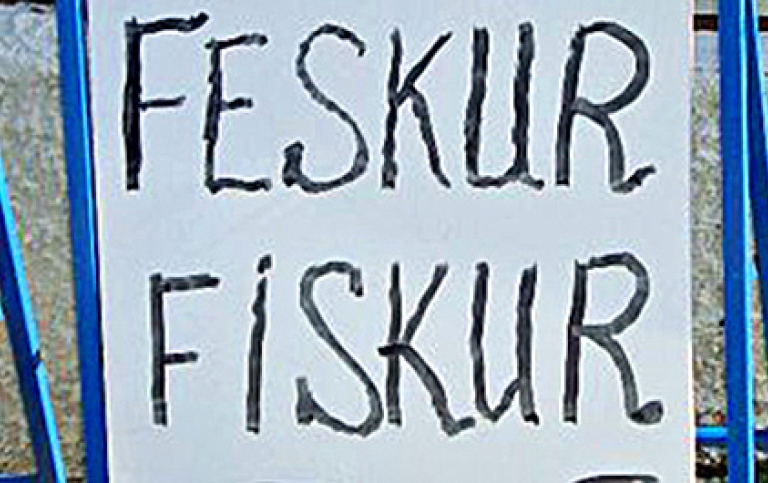 FESKUR
FISKUR